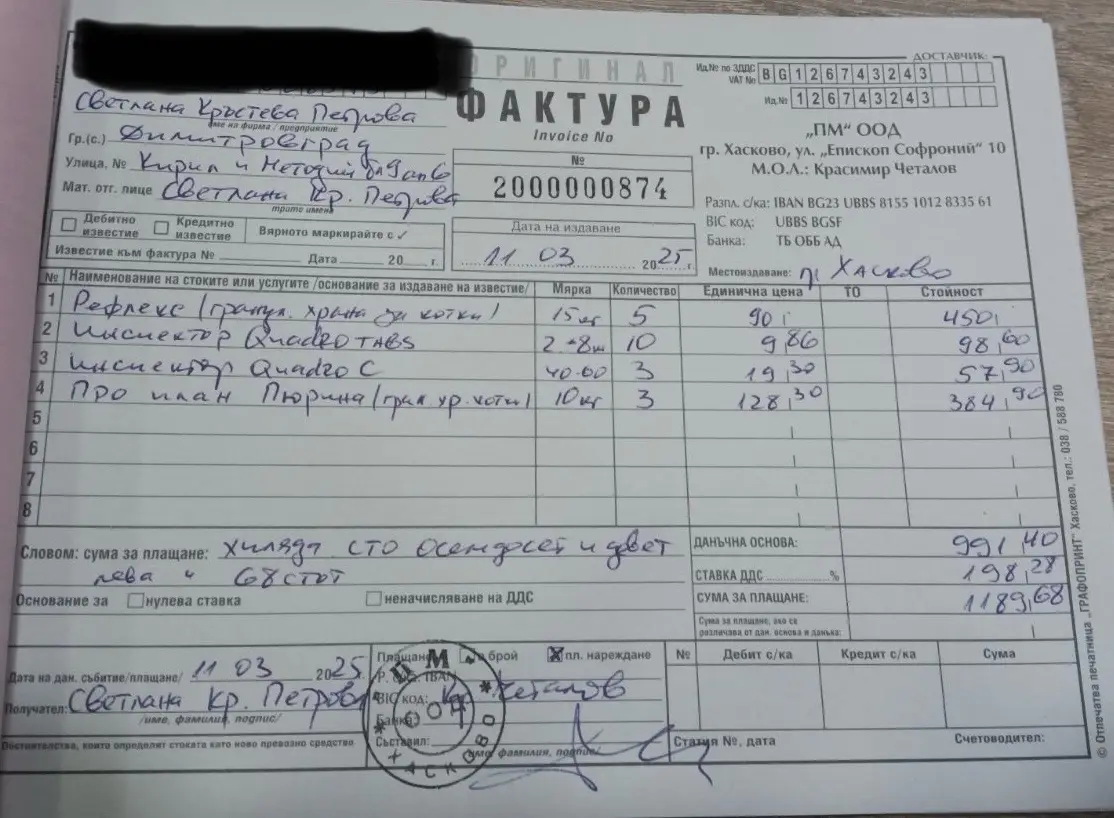 ОРИГИНАЛ
ФАКТУРА
Invoice No
ДОСТАВЧИК:
Ид.№ по ЗДДС VAT No BG126743243
Ид.№ 126743243
„ПМ“ ООД
гр. Хасково, ул. „Епископ Софроний“ 10
М.О.Л.: Красимир Четалов
Разпл. с/ка: IBAN BG23 UBBS 8155 1012 8335 61
BIC код: UBBS BGSF
Банка: ТБ ОББ АД
Местоиздаване: гр. Хасково
Светлана Кръстева Петрова
име на фирма / предприятие
Гр.(с.) Димитровград
Улица, № Кирил и Методий бл9 ап6
Мат. отг. лице Светлана Кр. Петрова
трите имена
№
2000000874
Дебитно известие Кредитно известие Вярното маркирайте с ✓
Известие към фактура № Дата 20 г.
Дата на издаване
11 03 2025 г.
№ Наименование на стоките или услугите /основание за издаване на известие/ Мярка Количество Единична цена ТО Стойност
1 Рефлекс /гранул. храна за котки/ 15кг 5 90, 450,
2 Инспектор Quadro TABS 2-8кг 10 9,86 98,60
3 Инспектор Quadro C 40-60 3 19,30 57,90
4 Про план Пюрина /гран. хр. котки/ 10кг 3 128,30 384,90
5
6
7
8
Словом: сума за плащане: хиляда сто осемдесет и девет
лева и 68 стот
Основание за нулева ставка неначисляване на ДДС
ДАНЪЧНА ОСНОВА: 991,40
СТАВКА ДДС % 198,28
СУМА ЗА ПЛАЩАНЕ: 1189,68
Сума за плащане, ако се различава от дан. основа и данъка:
Дата на дан. събитие/плащане/ 11 03 2025
Получател: Светлана Кр. Петрова
/име, фамилия, подпис/
Постоятелства, които определят стоката като ново превозно средство
Плащане: в брой X пл. нареждане
Р. с/ка IBAN
BIC код: Кр. Четалов
Банка:
Съставил:
/име, фамилия, подпис/
ПМ ООД ХАСКОВО
№ Дебит с/ка Кредит с/ка Сума
Статия №, дата Счетоводител:
© Отпечатва печатница „ГРАФОПРИНТ“ Хасково, тел.: 038 / 588 780